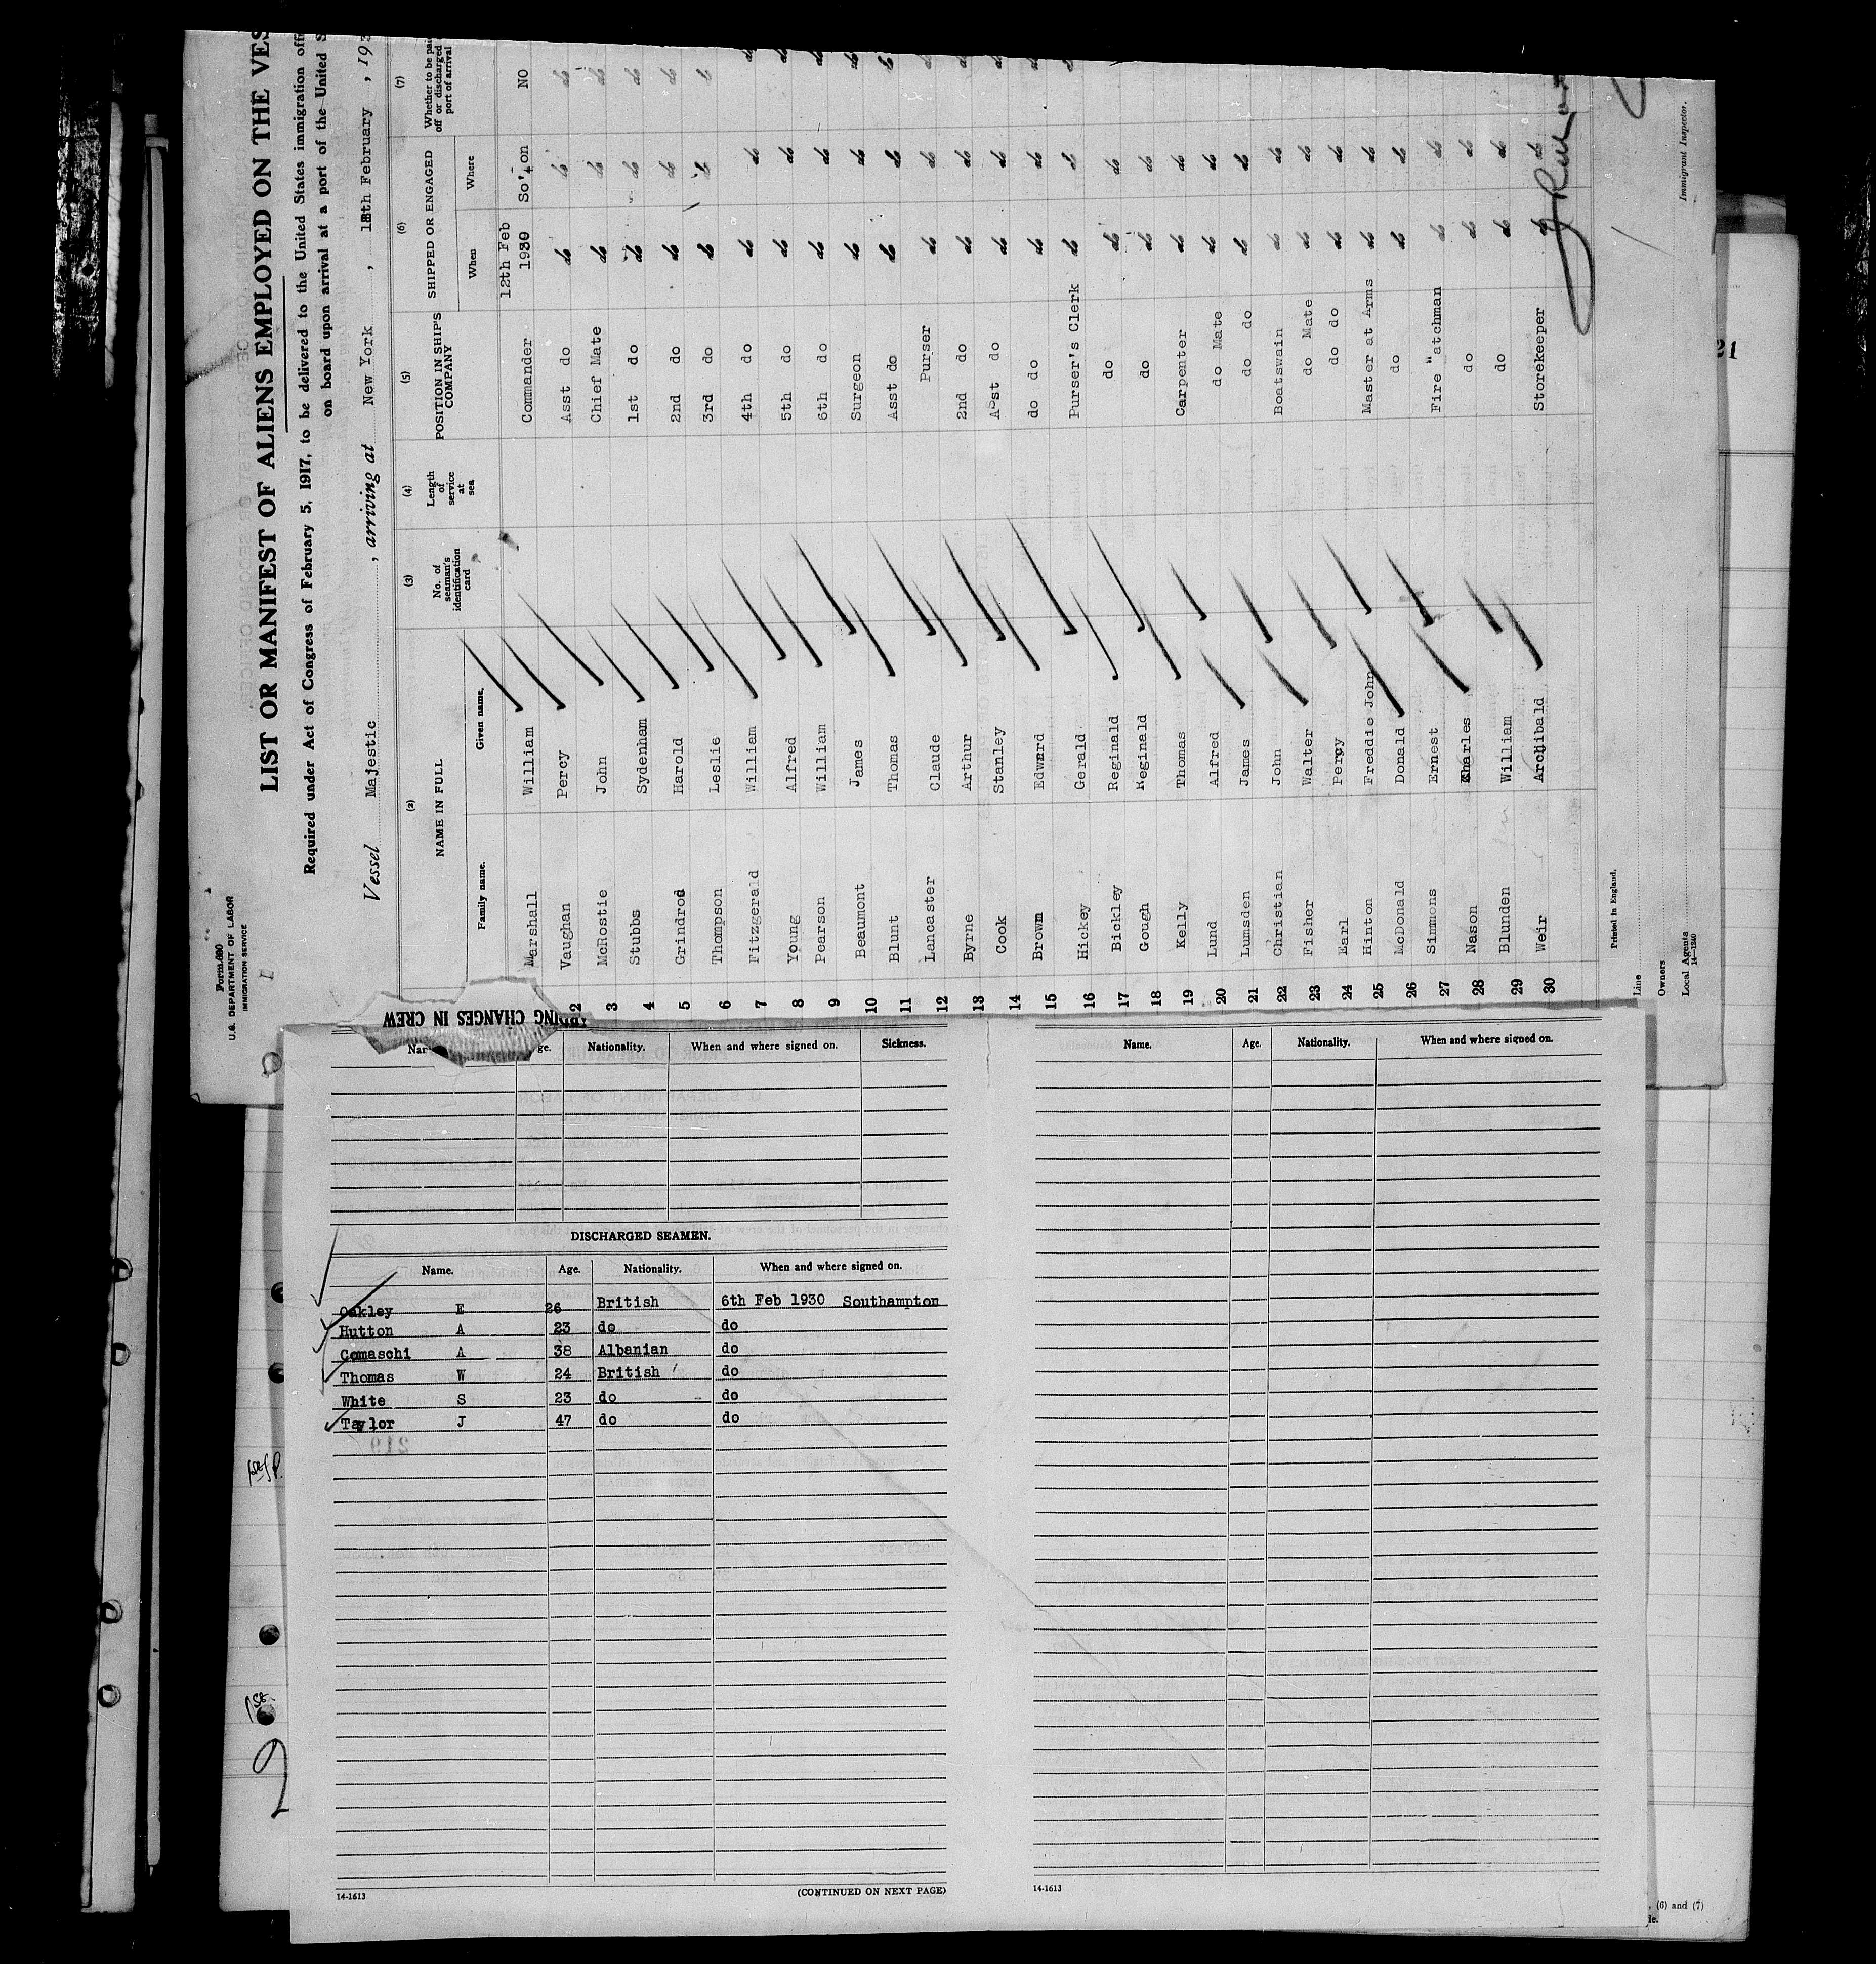 Form 680
U.S. DEPARTMENT OF LABOR
IMMIGRATION SERVICE
LIST OR MANIFEST OF ALIENS EMPLOYED ON THE VES
Required under Act of Congress of February 5, 1917, to be delivered to the United States immigration off
on board upon arrival at a port of the United S
Vessel Majestic, arriving at New York, 18th February, 193
(2) (3) (4) (5) (6) (7)
NAME IN FULL No. of seaman's identification card Length of service at sea POSITION IN SHIP'S COMPANY SHIPPED OR ENGAGED Whether to be pai off or discharged port of arrival
Family name. Given name. When Where
Marshall William Commander 12th Feb 1930 So'ton NO
2 Vaughan Percy Asst do do do do
3 McRostie John Chief Mate do do do
4 Stubbs Sydenham 1st do do do do
5 Grindrod Harold 2nd do do do do
6 Thompson Leslie 3rd do do do do
7 Fitzgerald William 4th do do do do
8 Young Alfred 5th do do do do
9 Pearson William 6th do do do do
10 Beaumont James Surgeon do do do
11 Blunt Thomas Asst do do do do
12 Lancaster Claude Purser do do do
13 Byrne Arthur 2nd do do do do
14 Cook Stanley Asst do do do do
15 Brown Edward do do do do do
16 Hickey Gerald Purser's Clerk do do do
17 Bickley Reginald do do do
18 Gough Reginald do do do
19 Kelly Thomas Carpenter do do
20 Lund Alfred do Mate do do
21 Lumsden James do do do do
22 Christian John Boatswain do do
23 Fisher Walter do Mate do do
24 Earl Percy do do do do
25 Hinton Freddie John Master at Arms do do
26 McDonald Donald do do do
27 Simmons Ernest Fire Watchman do do
28 Nason Charles do do do
29 Blunden William do do do
30 Weir Archibald Storekeeper do do
Printed in England.
Line
Owners
Local Agents
14-1240
Immigrant Inspector.
21
DING CHANGES IN CREW
Nar ge. Nationality. When and where signed on. Sickness.
Name. Age. Nationality. When and where signed on.
DISCHARGED SEAMEN.
Name. Age. Nationality. When and where signed on.
Oakley E 26 British 6th Feb 1930 Southampton
Hutton A 23 do do
Comaschi A 38 Albanian do
Thomas W 24 British do
White S 23 do do
Taylor J 47 do do
219
14-1613 (CONTINUED ON NEXT PAGE)
14-1613
, (6) and (7)
de.